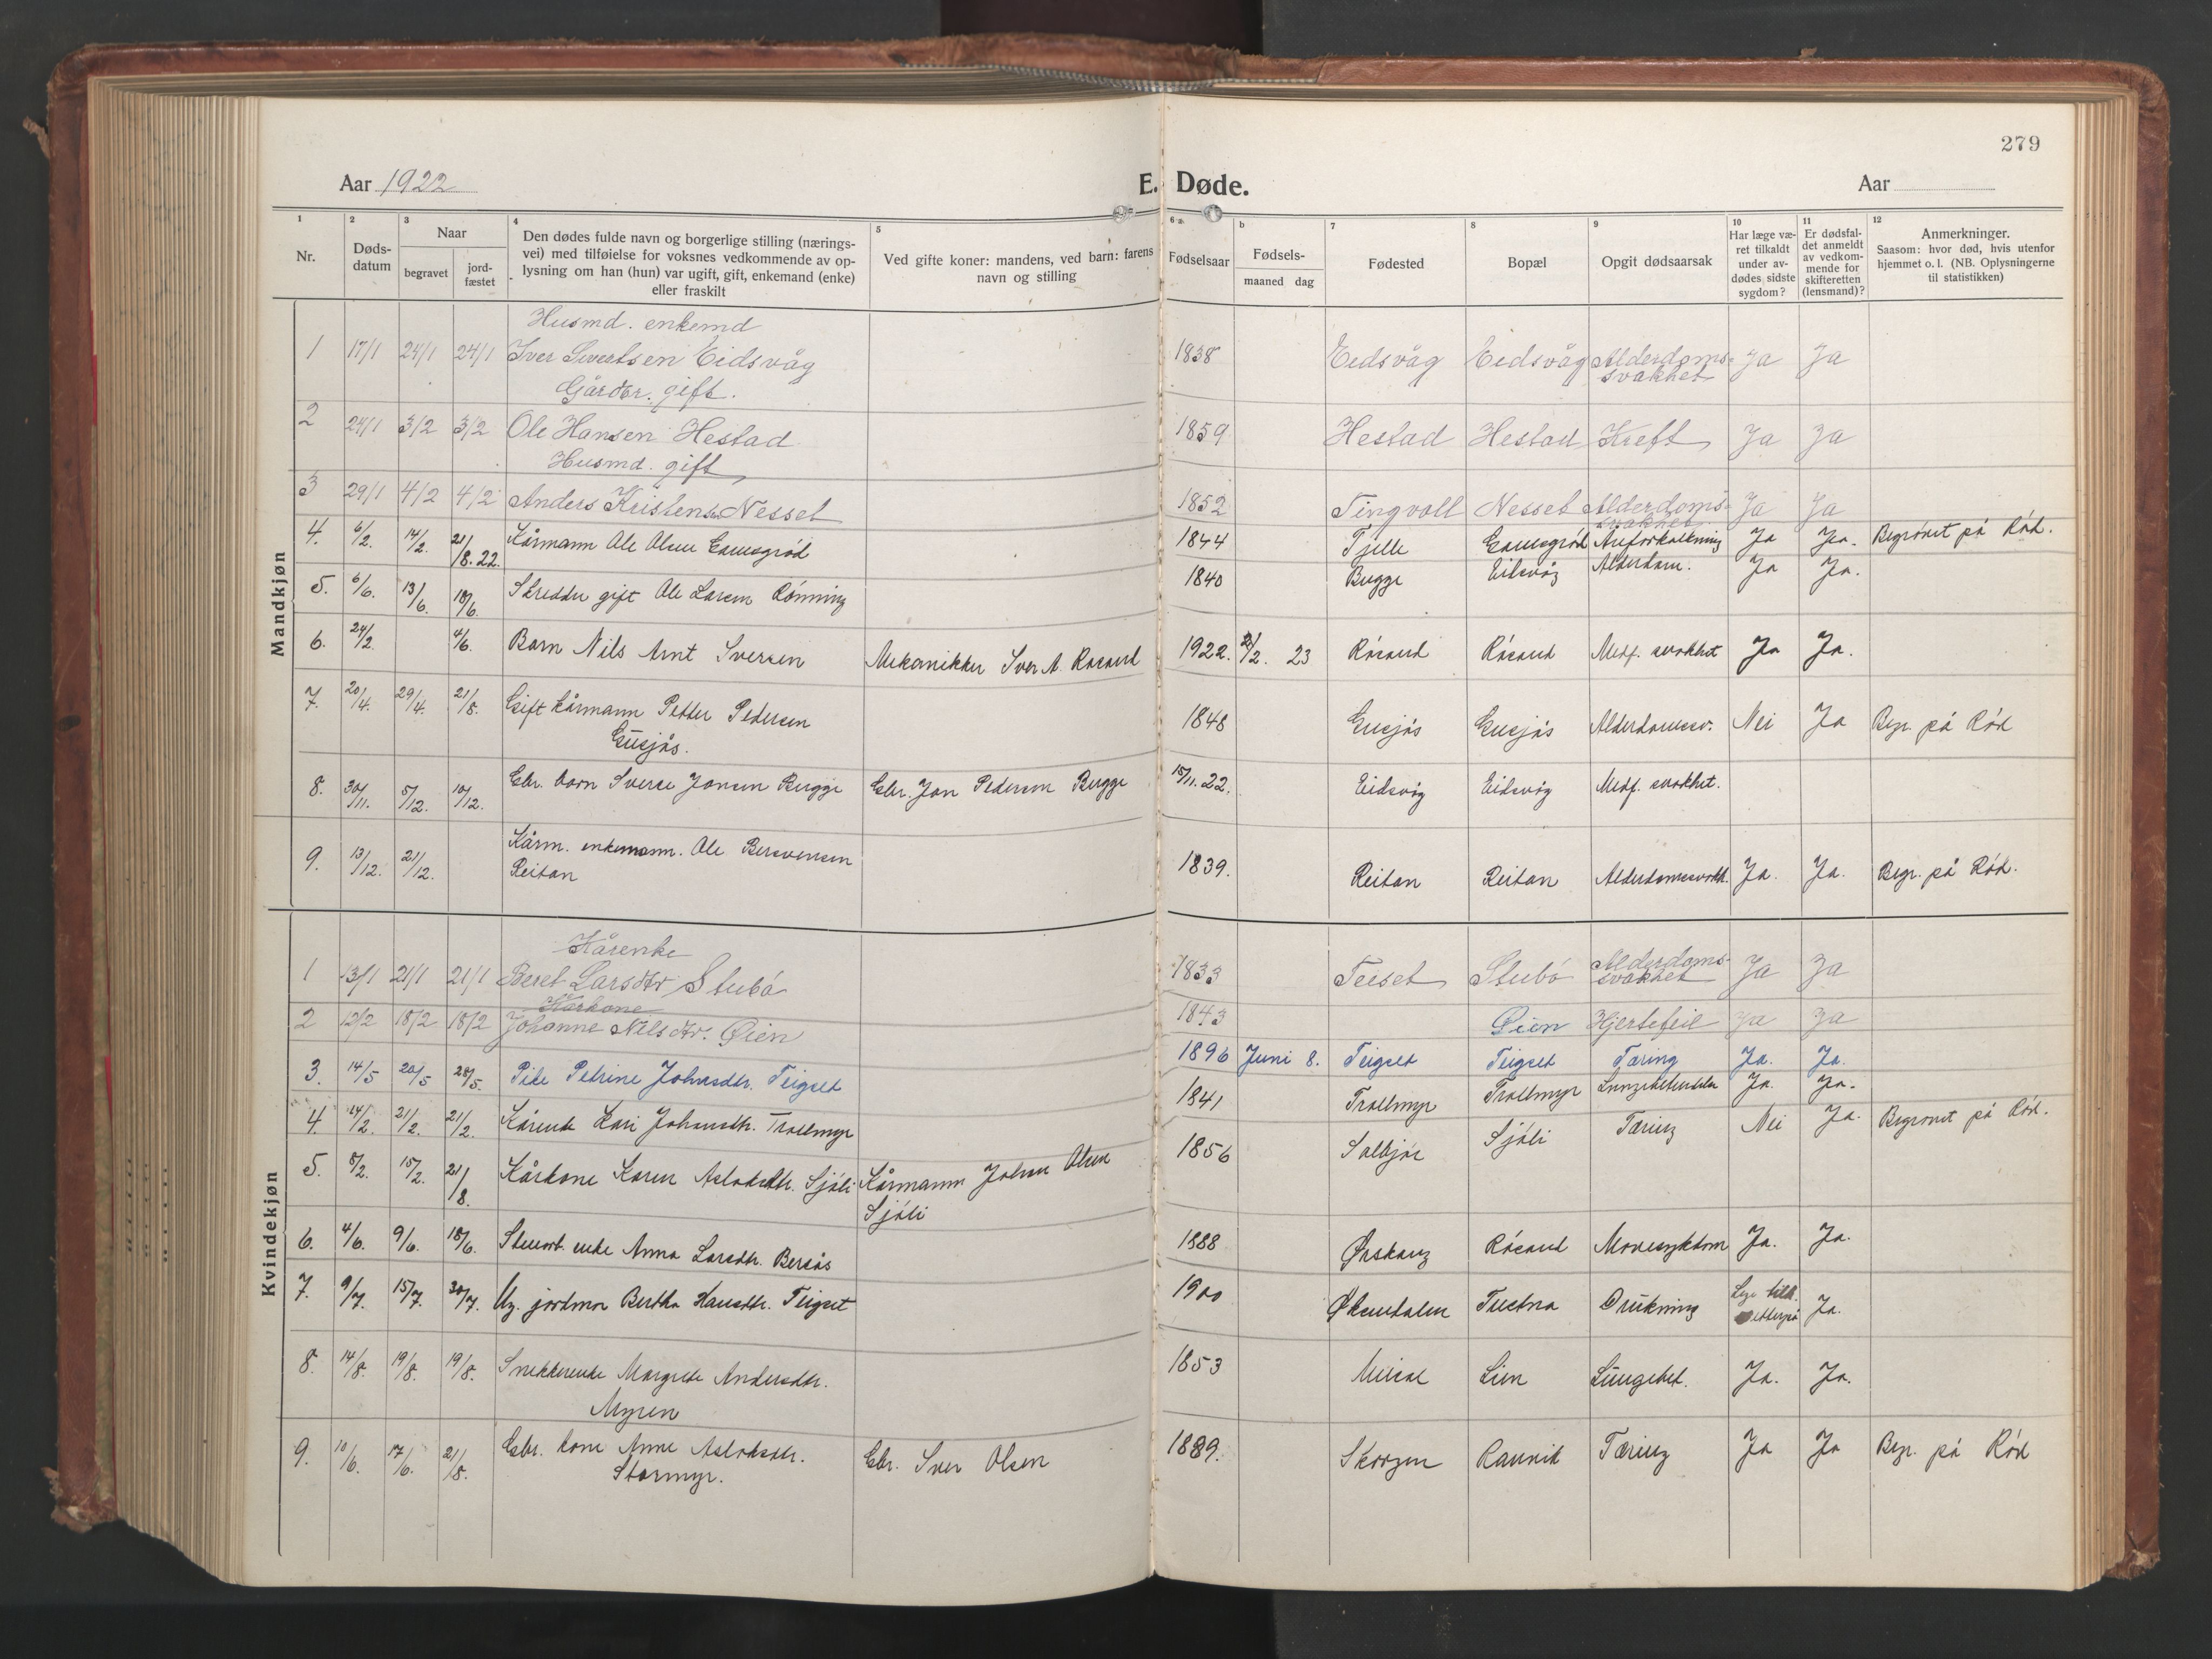 279
Aar 1922
E. Døde.
Aar
1 2 3 4 5 6 a. b 7 8 9 10 11 12
Nr.
Døds-
datum
Naar
begravet
jord-
fæstet
Den dødes fulde navn og borgerlige stilling (nærings-
vei) med tilføielse for voksnes vedkommende av op-
lysning om han (hun) var ugift, gift, enkemand (enke)
eller fraskilt
Ved gifte koner: mandens, ved barn: farens
navn og stilling
Fødselsaar
Fødsels-
maaned dag
Fødested
Bopæl
Opgit dødsaarsak
Har læge væ-
ret tilkaldt
under av-
dødes sidste
sygdom?
Er dødsfal-
det anmeldt
av vedkom-
mende for
skifteretten
(lensmand)?
Anmerkninger.
Saasom: hvor død, hvis utenfor
hjemmet o. l. (NB. Oplysningerne
til statistikken)
Mandkjøn
Husmd. enkemd
1 17/1 24/1 24/1 Iver Sivertsen Eidsvåg 1838 Eidsvåg Eidsvåg Alderdoms-
svakhet Ja Ja
Gårdbr. gift.
2 24/1 3/2 3/2 Ole Hansen Hestad 1859 Hestad Hestad Kreft Ja Ja
Husmd. gift
3 29/1 4/2 4/2 Anders Kristensen Nesset 1852 Tingvoll Nesset Alderdoms-
svakhet Ja Ja
4. 6/2. 14/2. 21/8. 22. Kårmann Ole Olsen 1844 Tjelle Ja Ja. Begravet på Rød.
5. 6/6. 13/6. 18/6. Skredder gift Ole Larsen Rønning 1840 Bugge Eidsvåg Alderdom. Ja Ja.
6. 24/2. 4/6. Barn Nils Arnt Iversen Mekanikker Iver A. Røsand 1922. 2/2. 23 Røsand Røsand Medf. svakhet Ja Ja.
7. 20/4. 29/4. 21/8. Gift kårmann Petter Pedersen
Gusjås. 1848 Gusjås Gusjås Alderdomssv. Nei Ja Begr. på Rød
8. 30/11. 5/12. 10/12. Gbr. barn Sverre Jonsen Bugge Gbr. Jon Pedersen Bugge 15/11. 22. Eidsvåg Eidsvåg Medf. svakhet.
9. 13/12. 21/12. Kårm. enkemann. Ole Bersvensen
Reitan 1839. Reitan Reitan Alderdomssvakh. Ja. Ja. Begr. på Rød.
Kvindekjøn
Kårenke
1 13/1 21/1 21/1 Beret Larsdtr Stubø 1833 Teset Stubø Alderdoms-
svakhet Ja Ja
Kårkone
2 12/2 18/2 18/2 Johanne Nilsdtr. Øien 1843 Øien Hjertefeil Ja Ja
3. 14/5 20/5 28/5. Pike Petrine Johnsdtr. Teigset 1896 Juni 8. Teigset Teigset Tæring Ja. Ja.
4. 14/2. 21/2. 21/2. Kårenke Kari Johansdtr. Trollmyr 1841 Trollmyr Trollmyr Ja. Ja.
5. 8/2. 15/2. 21/8. Kårkone Karen Aslaksdtr. Sjøli Kårmann Johan Olsen
Sjøli 1856 Solbjør Sjøli Tæring Nei Ja. Begravet på Rød.
6. 4/6. 9/6. 18/6. enke Anna Larsdtr. Bersås 1888 Ørskoug Røsand Mavesykdom Ja. Ja.
7. 9/7. 15/7. 30/7. Ug. jordmor Bertha Hansdtr. Teigset 1900 Øksendalen Tustna Drukning Lege tilk.
etterpå Ja.
8. 14/8. 19/8. 19/8. Snekkerenke Margrete Andersdtr.
Myren 1853 Lien Lungebet. Ja. Ja.
9. 10/6. 17/6. 21/8. Gbr. kone Anne Aslaksdtr.
Stormyr. Gbr. Iver Olsen 1889. Skorgen Ranvik Tæring Ja Ja Begr. på Rød